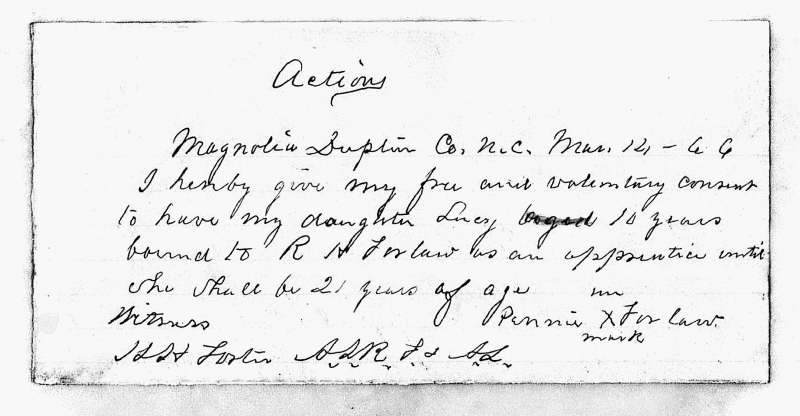 Actions
Magnolia Duplin Co. N.C. Mar. 14 - 66
I hereby give my free and voluntary consent
to have my daughter Lucy 10 years
bound to R H Forlaw as an apprentice until
she shall be 21 years of age
Witness Pennie X Forlaw
mark
H H Foster